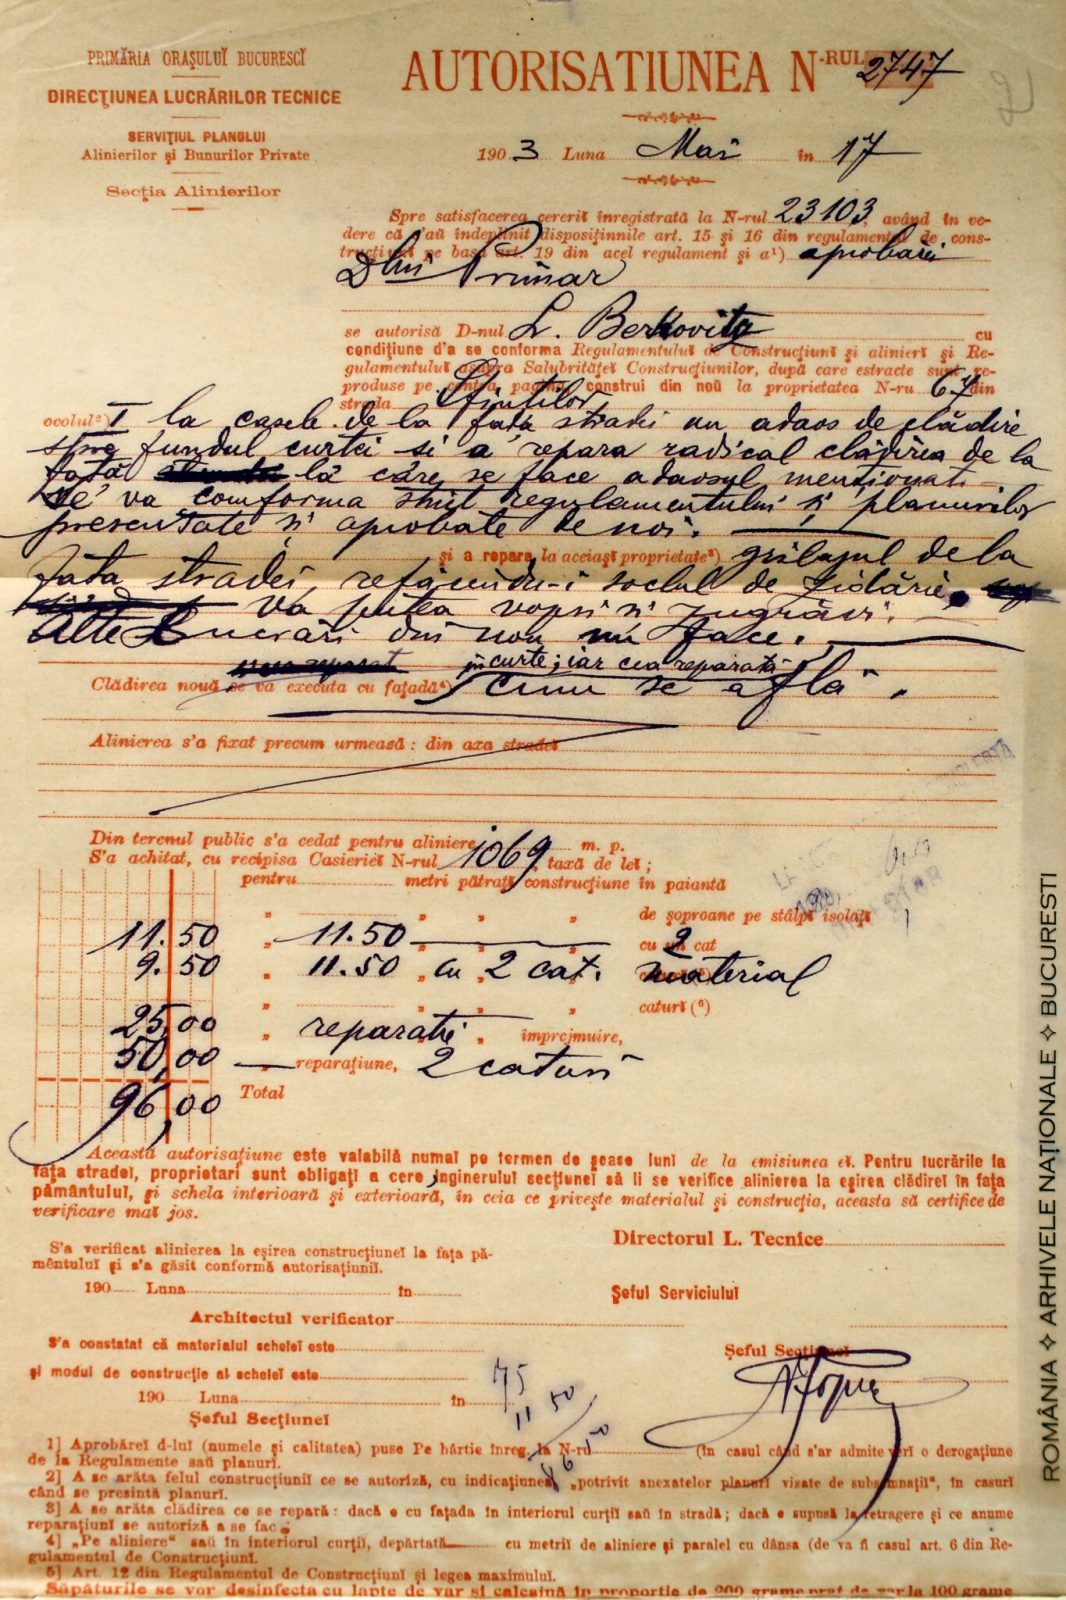 PRIMĂRIA ORAȘULUĬ BUCURESCĬ
DIRECȚIUNEA LUCRĂRILOR TECNICE
SERVIȚIUL PLANULUI
Alinierilor și Bunurilor Private
Secția Alinierilor
AUTORISATIUNEA N-RUL 2747
1903 Luna Mai în 17
Spre satisfacerea cerereĭ înregistrată la N-rul 23103, având în ve-
dere că s'aŭ îndeplinit disposițiunile art. 15 și 16 din regulamentul de cons-
trucțiunĭ pe baza art. 19 din acel regulament și a¹) aprobarei
Dlui Primar
se autorisă D-nul L. Berkovitz cu
condițiune d'a se conforma Regulamentuluĭ de Construcțiunĭ și alinierĭ și Re-
gulamentuluĭ asupra Salubrităței Construcțiunilor, după care estracte sunt re-
produse pe contra pagină, construi din noŭ la proprietatea N-ru 67 din
strada Sfinților
ocolul²) I la casele de la fața stradei un adaos de clădire
spre fundul curtei si a repara radical clădirea de la
fată la care se face adaosul mentionat
Se va conforma strict regulamentului și planurilor
presentate si aprobate de noi.
și a repara, la aceiașĭ proprietate³) grilajul de la
fata stradei, refăcându-i soclul de zidărie,
va putea vopsi si zugrăvi.
Alte lucrări din nou nu face.
în curte; iar cea reparată
Clădirea nouă se va executa cu fațadă⁴) cum se află.
Alinierea s'a fixat precum urmează: din axa stradeĭ
Din terenul public s'a cedat pentru aliniere m. p.
S'a achitat, cu recipisa Casierieĭ N-rul 1069, taxă de leĭ;
pentru metri pătrațĭ construcțiune în paiantă
„ „ „ „ de șoproane pe stâlpĭ isolațĭ
11.50 „ 11.50 „ „ „ cu 2 cat
9.50 „ 11.50 „ cu 2 cat. material
„ „ „ „ caturĭ (⁶)
25,00 „ reparatii „ împrejmuire,
50,00 „ reparațiune, 2 caturi
96,00 Total
Această autorisațiune este valabilă numaĭ pe termen de șease lunĭ de la emisiunea eĭ. Pentru lucrările la
fața stradeĭ, proprietari sunt obligați a cere inginerului secțiuneĭ să li se verifice alinierea la eșirea clădireĭ în fața
pământuluĭ, și schela interioară și exterioară, în ceia ce privește materialul și construcția, aceasta să certifice de
verificare maĭ jos.
Directorul L. Tecnice
S'a verificat alinierea la eșirea construcțiuneĭ la fața pă-
mêntuluĭ și s'a găsit conformă autorisațiuniĭ.
190 Luna în
Șeful Serviciuluĭ
Architectul verificator
S'a constatat că materialul scheleĭ este
Șeful Secțiuneĭ
și modul de construcție al scheleĭ este
190 Luna în
Șeful Secțiuneĭ
75
11 50
86 50
1] Aprobăreĭ d-luĭ (numele și calitatea) puse Pe hârtie înreg. la N-ru (în casul când s'ar admite vre o derogațiune
de la Regulamente saŭ planurĭ.
2] A se arăta felul construcțiuniĭ ce se autoriză, cu indicațiunea „potrivit anexatelor planurĭ vizate de subsemnațiĭ", în casurĭ
când se presintă planurĭ.
3] A se arăta clădirea ce se repară: dacă e cu fațada în interiorul curțiĭ saŭ în stradă; dacă e supusă la retragere și ce anume
reparațiunĭ se autoriză a se face
4] „Pe aliniere" saŭ în interiorul curțiĭ, depărtată cu metriĭ de aliniere și paralel cu dânsa (de va fi casul art. 6 din Re-
gulamentul de Construcțiunĭ.
5] Art. 12 din Regulamentul de Construcțiunĭ și legea maximuluĭ.
Săpăturile se vor desinfecta cu lapte de var și calcaină în proporție de 200 grame praf de var la 100 grame
ROMÂNIA ✧ ARHIVELE NAȚIONALE ✧ BUCUREȘTI